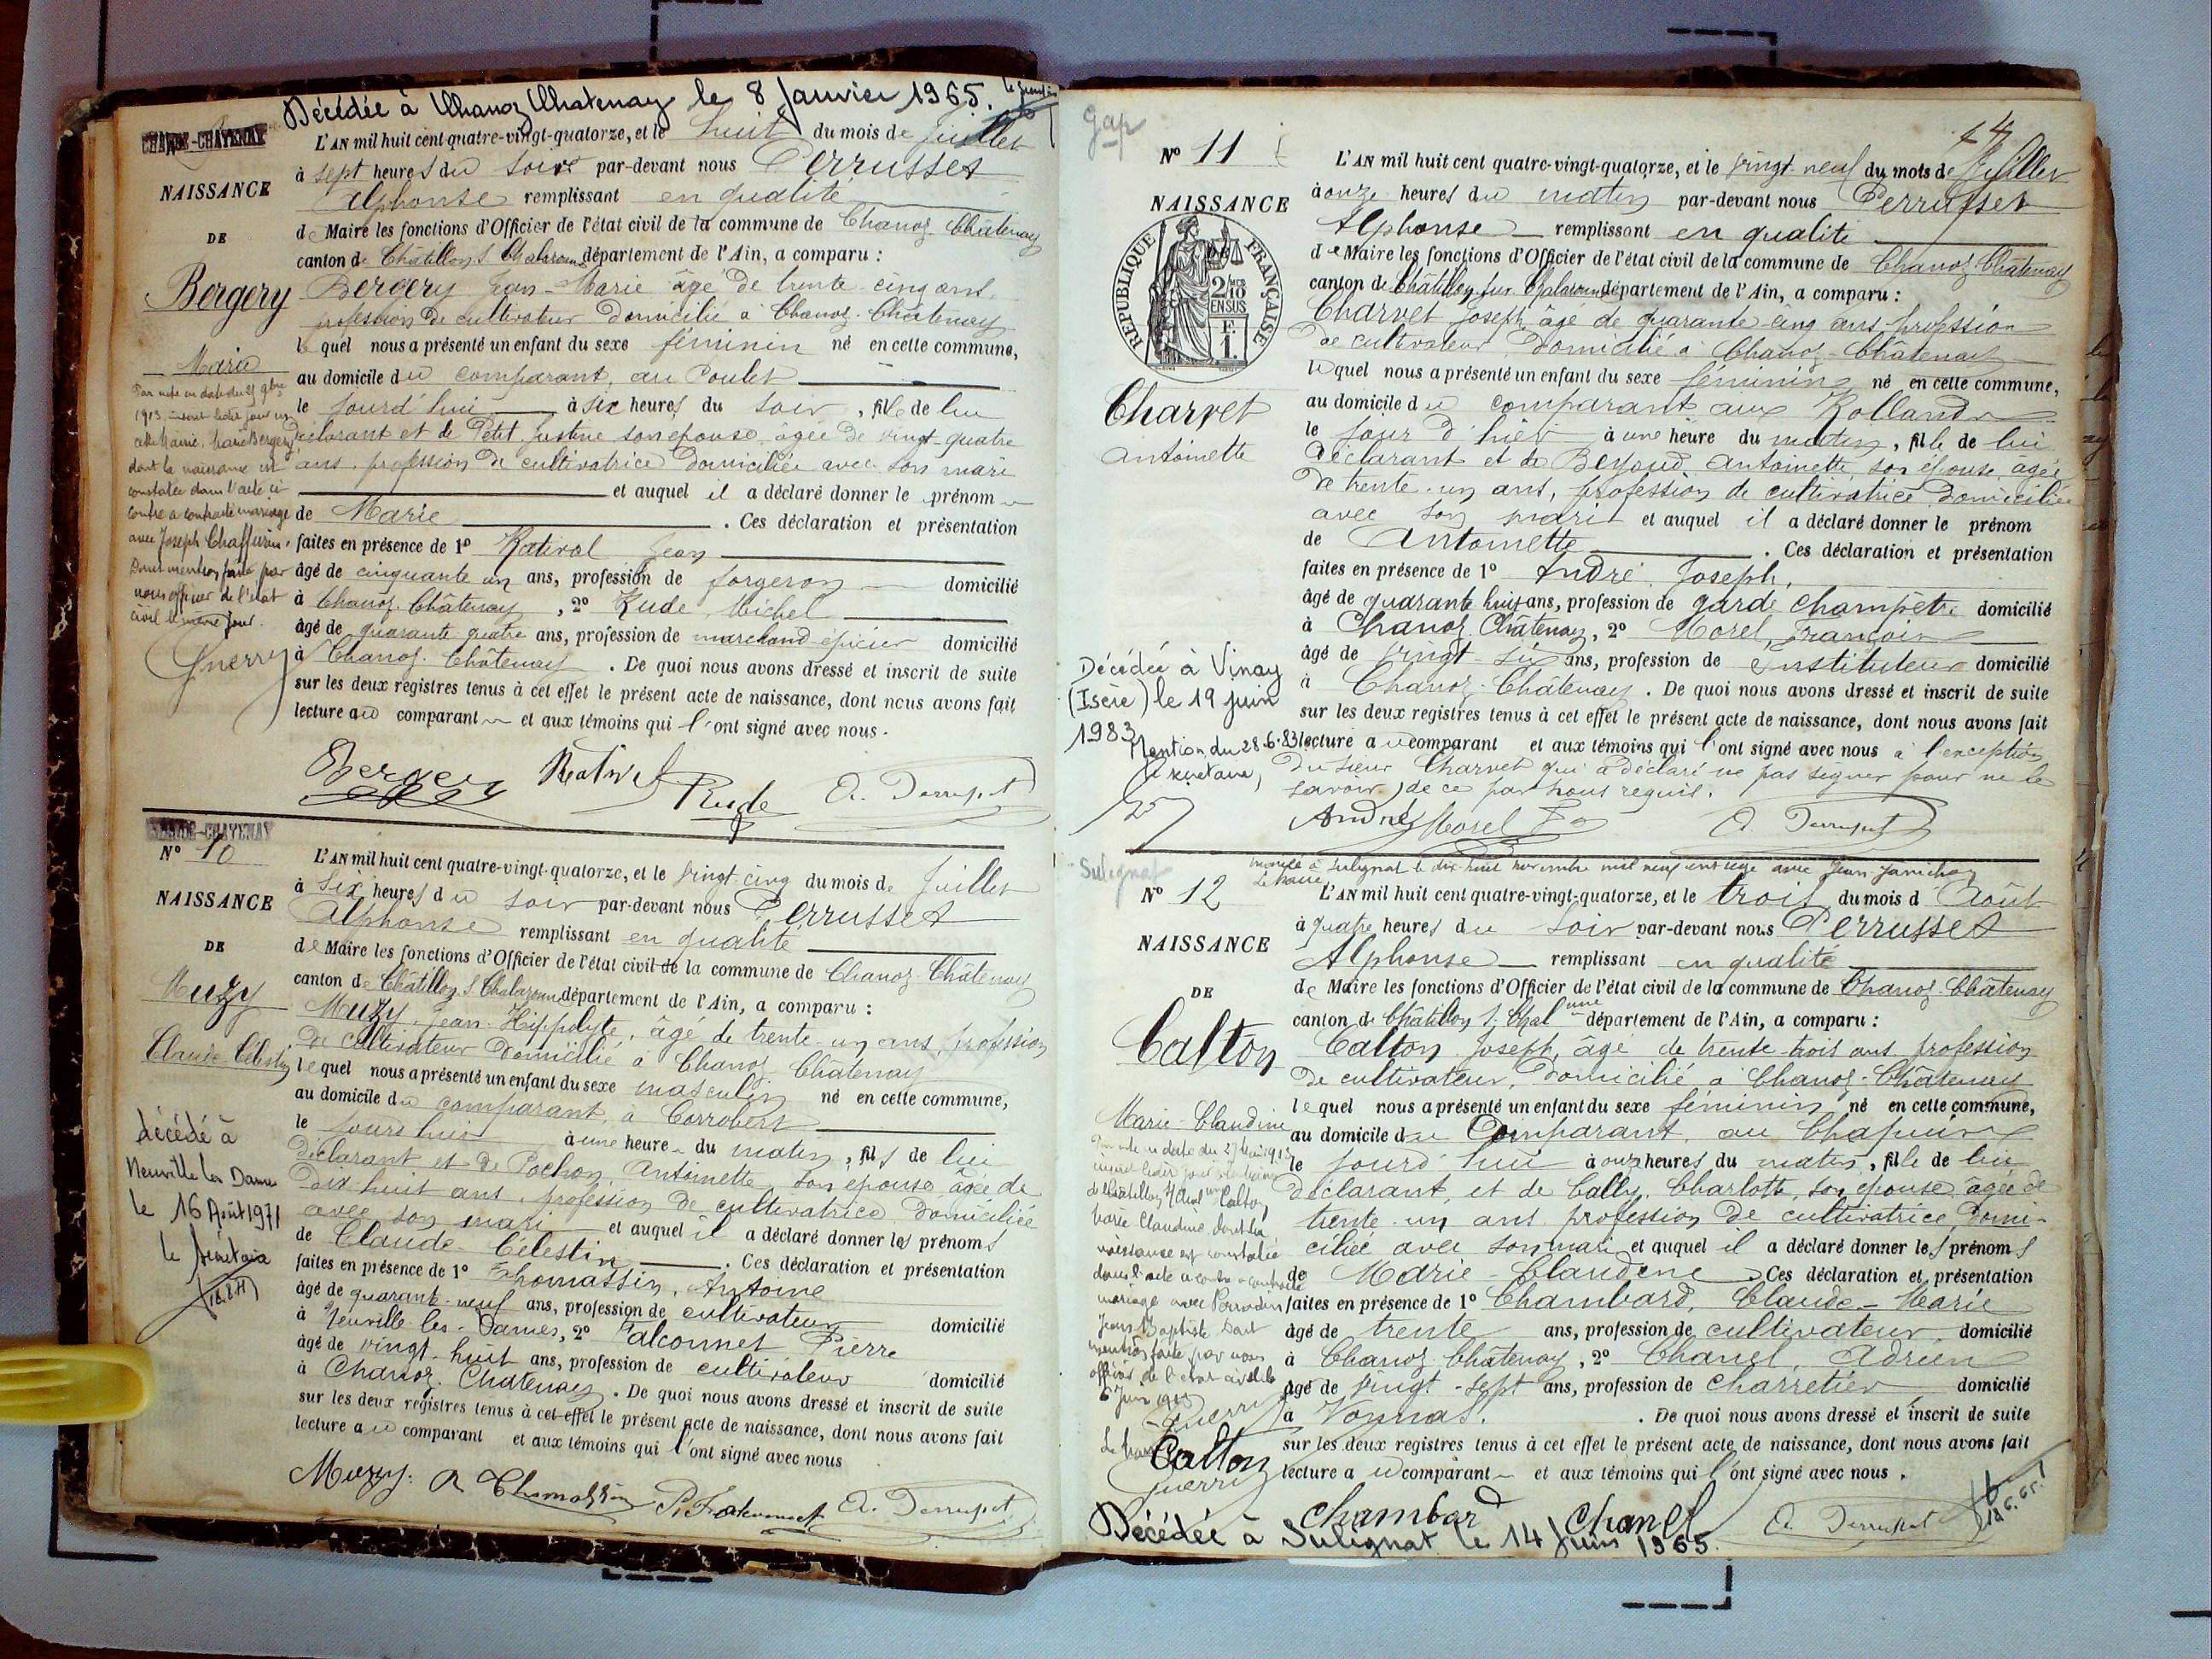 Décédée à Chanoz Chatenay le 8 Janvier 1965.
CHANOZ-CHATENAY
NAISSANCE
DE
Bergery
Marie
Par acte en date du
1913, inscrit ledit jour
cette Mairie, Marie Bergery
dont la naissance est
constatée dans l'acte ci
contre a contracté mariage
avec Joseph Chaffurin.
Dont mention faite par
nous officier de l'état
civil le même jour.
Guerry
L'AN mil huit cent quatre-vingt-quatorze, et le huit du mois de Juillet
à sept heures du soir par-devant nous Perrusset
Alphonse remplissant en qualité
de Maire les fonctions d'Officier de l'état civil de la commune de Chanoz-Châtenay
canton de Châtillon s Chalaronne département de l'Ain, a comparu :
Bergery Jean-Marie âgé de trente cinq ans
profession de cultivateur domicilié à Chanoz-Châtenay
lequel nous a présenté un enfant du sexe féminin né en cette commune,
au domicile du comparant, au Poulet
le jourd'hui à six heures du soir, fille de lui
déclarant et de Petit Justine son épouse, âgée de vingt quatre
ans, profession de cultivatrice domiciliée avec son mari
et auquel il a déclaré donner le prénom
de Marie . Ces déclaration et présentation
faites en présence de 1° Jean
âgé de cinquante un ans, profession de forgeron domicilié
à Chanoz-Châtenay, 2° Rude Michel
âgé de quarante quatre ans, profession de marchand épicier domicilié
à Chanoz-Châtenay . De quoi nous avons dressé et inscrit de suite
sur les deux registres tenus à cet effet le présent acte de naissance, dont nous avons fait
lecture au comparant et aux témoins qui l'ont signé avec nous.
Bergery Rude A. Perrusset
CHANOZ-CHATENAY
N° 10
NAISSANCE
DE
Muzy
Claude Célestin
décédé à
Neuville les Dames
le 16 Août 1971
le secrétaire
L'AN mil huit cent quatre-vingt-quatorze, et le vingt-cinq du mois de Juillet
à six heures du soir par-devant nous Perrusset
Alphonse remplissant en qualité
de Maire les fonctions d'Officier de l'état civil de la commune de Chanoz-Châtenay
canton de Châtillon s Chalaronne département de l'Ain, a comparu :
Muzy, Jean-Hippolyte, âgé de trente-un ans, profession
de cultivateur domicilié à Chanoz-Châtenay
lequel nous a présenté un enfant du sexe masculin né en cette commune,
au domicile du comparant, à Corrobert
le jourd'hui à une heure du matin, fils de lui
déclarant et de Pochon, Antoinette, son épouse âgée de
dix-huit ans, profession de cultivatrice domiciliée
avec son mari et auquel il a déclaré donner les prénoms
de Claude-Célestin . Ces déclaration et présentation
faites en présence de 1° Thomassin, Antoine
âgé de quarante-neuf ans, profession de cultivateur domicilié
à Neuville-les-Dames, 2° Falconnet Pierre
âgé de vingt-huit ans, profession de cultivateur domicilié
à Chanoz-Châtenay. De quoi nous avons dressé et inscrit de suite
sur les deux registres tenus à cet effet le présent acte de naissance, dont nous avons fait
lecture au comparant et aux témoins qui l'ont signé avec nous
Muzy. A Thomassin P. Falconnet A. Perrusset
Gap
N° 11
NAISSANCE
DE
REPUBLIQUE FRANÇAISE
Charvet
Antoinette
Décédée à Vinay
(Isère) le 19 juin
1983
Mention du 28.6.83
Le secrétaire,
L'AN mil huit cent quatre-vingt-quatorze, et le vingt-neuf du mois de Juillet
à onze heures du matin par-devant nous Perrusset
Alphonse remplissant en qualité
de Maire les fonctions d'Officier de l'état civil de la commune de Chanoz-Châtenay
canton de Châtillon sur Chalaronne département de l'Ain, a comparu :
Charvet Joseph, âgé de quarante-cinq ans profession
de cultivateur domicilié à Chanoz-Châtenay
lequel nous a présenté un enfant du sexe féminin né en cette commune,
au domicile du comparant aux
le jour d'hier à une heure du matin, fille de lui
déclarant et de Antoinette, son épouse, âgée
de trente-un ans, profession de cultivatrice domiciliée
avec son mari et auquel il a déclaré donner le prénom
de Antoinette . Ces déclaration et présentation
faites en présence de 1° André Joseph,
âgé de quarante huit ans, profession de garde champêtre domicilié
à Chanoz-Châtenay, 2° Morel, François
âgé de vingt-six ans, profession de instituteur domicilié
à Chanoz-Châtenay . De quoi nous avons dressé et inscrit de suite
sur les deux registres tenus à cet effet le présent acte de naissance, dont nous avons fait
lecture au comparant et aux témoins qui l'ont signé avec nous à l'exception
du sieur Charvet qui a déclaré ne pas signer pour ne le
savoir, de ce par nous requis.
André Morel A. Perrusset
Sulignat
mariée à Sulignat le dix huit novembre mil neuf cent avec Jean Janichon
Le Maire
N° 12
NAISSANCE
DE
Calton
Marie-Claudine
Par acte en date du 27 Mai 1913
inscrit ledit jour
de Châtillon s/Chal Calton
Marie Claudine dont la
naissance est constatée
dans l'acte ci contre a contracté
mariage avec
Jean Baptiste Dont
mention faite par nous
officier de l'état civil le
6 Juin 1913
Guerry
L'AN mil huit cent quatre-vingt-quatorze, et le trois du mois d Août
à quatre heures du soir par-devant nous Perrusset
Alphonse remplissant en qualité
de Maire les fonctions d'Officier de l'état civil de la commune de Chanoz-Châtenay
canton de Châtillon s. Chalnne département de l'Ain, a comparu :
Calton Joseph, âgé de trente-trois ans profession
de cultivateur, domicilié à Chanoz-Châtenay
lequel nous a présenté un enfant du sexe féminin né en cette commune,
au domicile du Comparant, au
le jourd'hui à onze heures du matin, fille de lui
déclarant, et de Cally, Charlotte, son épouse âgée de
trente-un ans profession de cultivatrice domi-
ciliée avec son mari et auquel il a déclaré donner les prénoms
de Marie-Claudine . Ces déclaration et présentation
faites en présence de 1° Chambard, Claude-Marie
âgé de trente ans, profession de cultivateur domicilié
à Chanoz-Châtenay, 2° Chanel, Adrien
âgé de vingt-sept ans, profession de charretier domicilié
à Vonnas. . De quoi nous avons dressé et inscrit de suite
sur les deux registres tenus à cet effet le présent acte de naissance, dont nous avons fait
lecture au comparant et aux témoins qui l'ont signé avec nous.
Calton Chambard Chanel A. Perrusset
Guerry
Décédée à Sulignat le 14 Juin 1965.